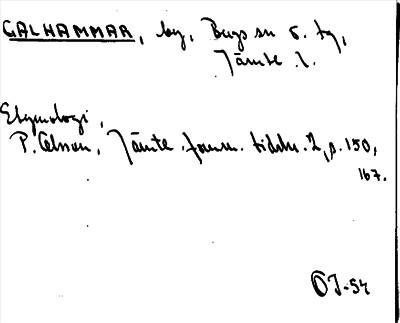 GALHAMMAR, by, Bergs sn o. tg,
Jämtl.
Etymologi,
P. Olsson, Jämtl. fornm. tidskr. 2, s. 150,
167.
OJ-54